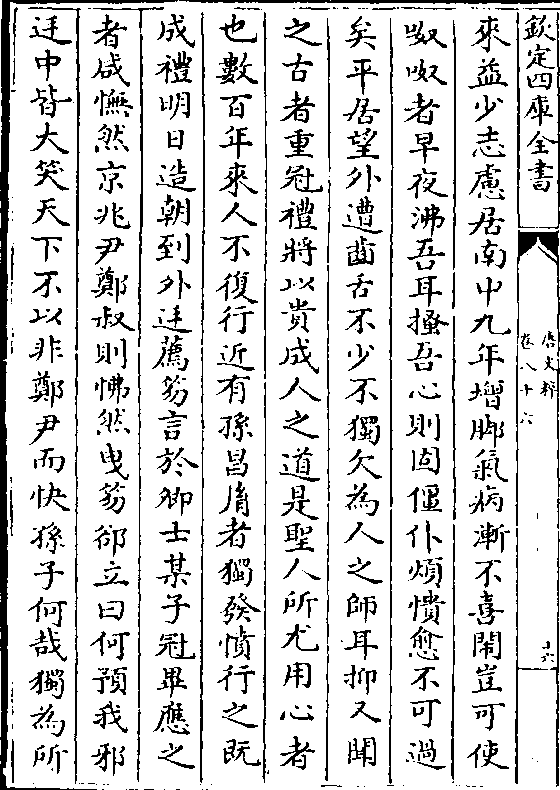 欽定四庫全書
唐文粹
卷八十六
十六
來益少志慮居南中九年增脚氣病漸不喜閙豈可使
呶呶者早夜沸吾耳搔吾心則固僵仆煩憒愈不可過
矣平居望外遭齒舌不少不獨欠為人之師耳抑又聞
之古者重冠禮將以貴成人之道是聖人所尤用心者
也數百年來人不復行近有孫昌𦙍者獨發憤行之既
成禮明日造朝到外廷薦笏言於卿士某子冠畢應之
者咸憮然京兆尹鄭叔則怫然曳笏郤立曰何預我邪
廷中皆大笑天下不以非鄭尹而快孫子何哉獨為所